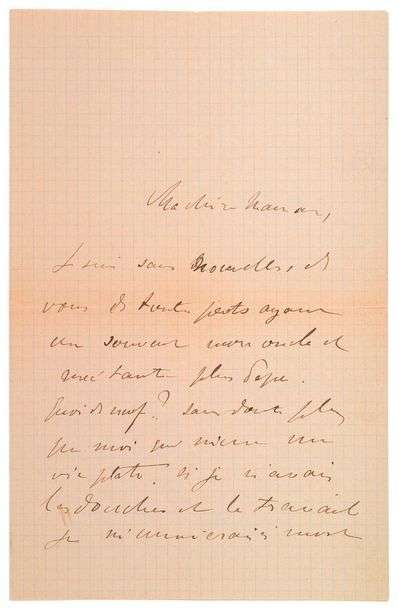 Ma chère Maman,
Je suis sans nouvelles de
vous de toute parts ayant
un souvent mon oncle et
ma tante plus
Quoi de neuf? Sans doute plus
que moi qui mène une
vie plate. Si je n'avais
les douches et le travail
je m'ennuierais à mort